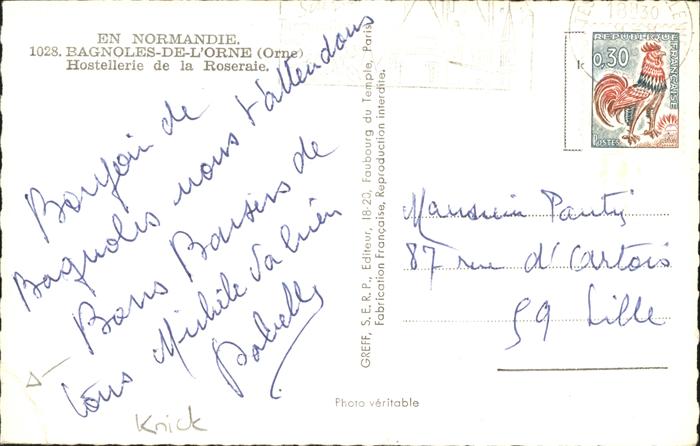 EN NORMANDIE.
1028. BAGNOLES-DE-L'ORNE (Orne)
Hostellerie de la Roseraie.
Bonjoin de
Bagnoles nous t'attendons
Bons Baisers de
tous Michèle
GREFF, S. E. R. P., Editeur, 18-20, Faubourg du Temple, Paris
Fabrication Française, Reproduction interdite.
Photo véritable
Knick
REPUBLIQUE
FRANÇAISE
0,30
POSTES
Monsieur
87 rue d'Artois
59 Lille